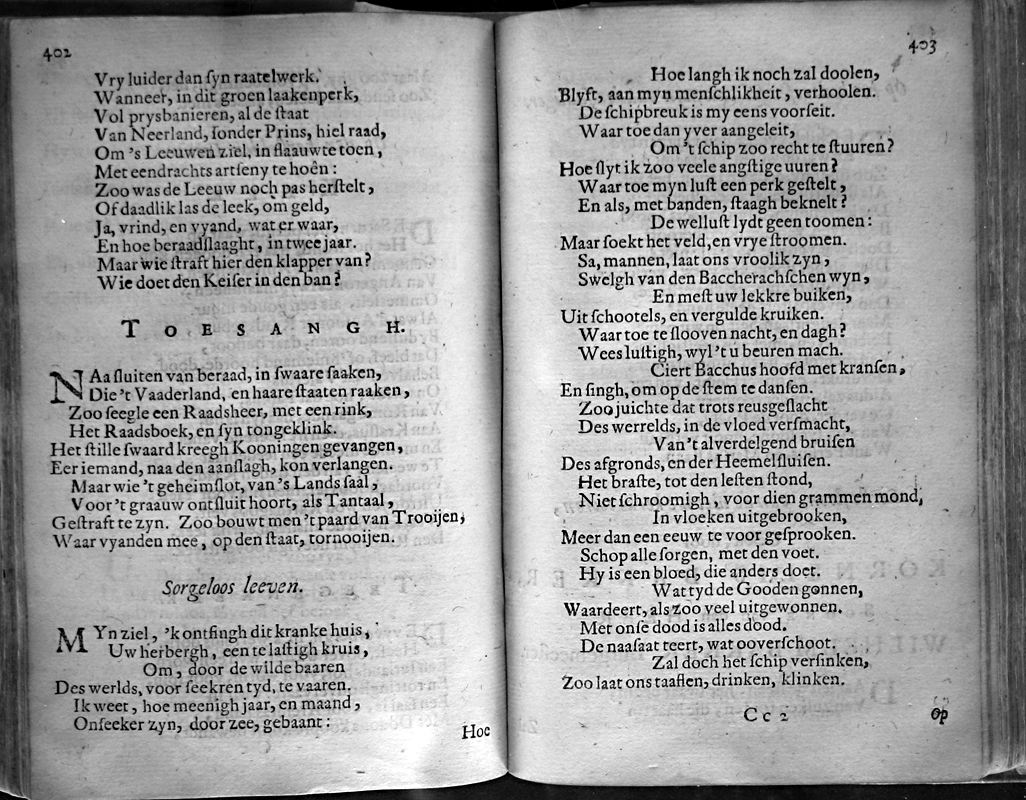 402
Vry luider dan ſyn raatelwerk.
Wanneer, in dit groen laakenperk,
Vol prysbanieren, al de ſtaat
Van Neerland, ſonder Prins, hiel raad,
Om 's Leeuwen ziel, in flaauwte toen,
Met eendrachts artſeny te hoên:
Zoo was de Leeuw noch pas herſtelt,
Of daadlik las de leek, om geld,
Ja, vrind, en vyand, wat er waar,
En hoe beraadſlaaght, in twee jaar.
Maar wie ſtraft hier den klapper van?
Wie doet den Keiſer in den ban?
TOESANGH.
NAa ſluiten van beraad, in ſwaare ſaaken,
Die 't Vaaderland, en haare ſtaaten raaken,
Zoo ſeegle een Raadsheer, met een rink,
Het Raadsboek, en ſyn tongeklink.
Het ſtille ſwaard kreegh Kooningen gevangen,
Eer iemand, naa den aanſlagh, kon verlangen.
Maar wie 't geheimſlot, van 's Lands ſaal,
Voor 't graauw ontſluit hoort, als Tantaal,
Geſtraft te zyn. Zoo bouwt men 't paard van Trooijen,
Waar vyanden mee, op den ſtaat, tornooijen.
Sorgeloos leeven.
MYn ziel, 'k ontfingh dit kranke huis,
Uw herbergh, een te laſtigh kruis,
Om, door de wilde baaren
Des werlds, voor ſeekren tyd, te vaaren.
Ik weet, hoe meenigh jaar, en maand,
Onſeeker zyn, door zee, gebaant:
Hoe
403
Hoe langh ik noch zal doolen,
Blyft, aan myn menſchlikheit, verhoolen.
De ſchipbreuk is my eens voorſeit.
Waar toe dan yver aangeleit,
Om 't ſchip zoo recht te ſtuuren?
Hoe ſlyt ik zoo veele angſtige uuren?
Waar toe myn luſt een perk geſtelt,
En als, met banden, ſtaagh beknelt?
De welluſt lydt geen toomen:
Maar ſoekt het veld, en vrye ſtroomen.
Sa, mannen, laat ons vroolik zyn,
Swelgh van den Baccherachſchen wyn,
En meſt uw lekkre buiken,
Uit ſchootels, en vergulde kruiken.
Waar toe te ſlooven nacht, en dagh?
Wees luſtigh, wyl 't u beuren mach.
Ciert Bacchus hoofd met kranſen,
En ſingh, om op de ſtem te danſen.
Zoo juichte dat trots reusgeſlacht
Des werrelds, in de vloed verſmacht,
Van 't alverdelgend bruiſen
Des afgronds, en der Heemelſluiſen.
Het braſte, tot den leſten ſtond,
Niet ſchroomigh, voor dien grammen mond,
In vloeken uitgebrooken,
Meer dan een eeuw te voor geſprooken.
Schop alle ſorgen, met den voet.
Hy is een bloed, die anders doet.
Wat tyd de Gooden gonnen,
Waardeert, als zoo veel uitgewonnen.
Met onſe dood is alles dood.
De naaſaat teert, wat ooverſchoot.
Zal doch het ſchip verſinken,
Zoo laat ons taaflen, drinken, klinken.
Cc 2
Op